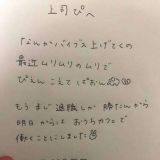 上司ぴへ
なんかバイブス上げてくの
最近ムリムリのムリで
ぴえんこえてぱおん
もうまじ退職しか勝たんから
明日からはおうちカフェで
働くことにしました